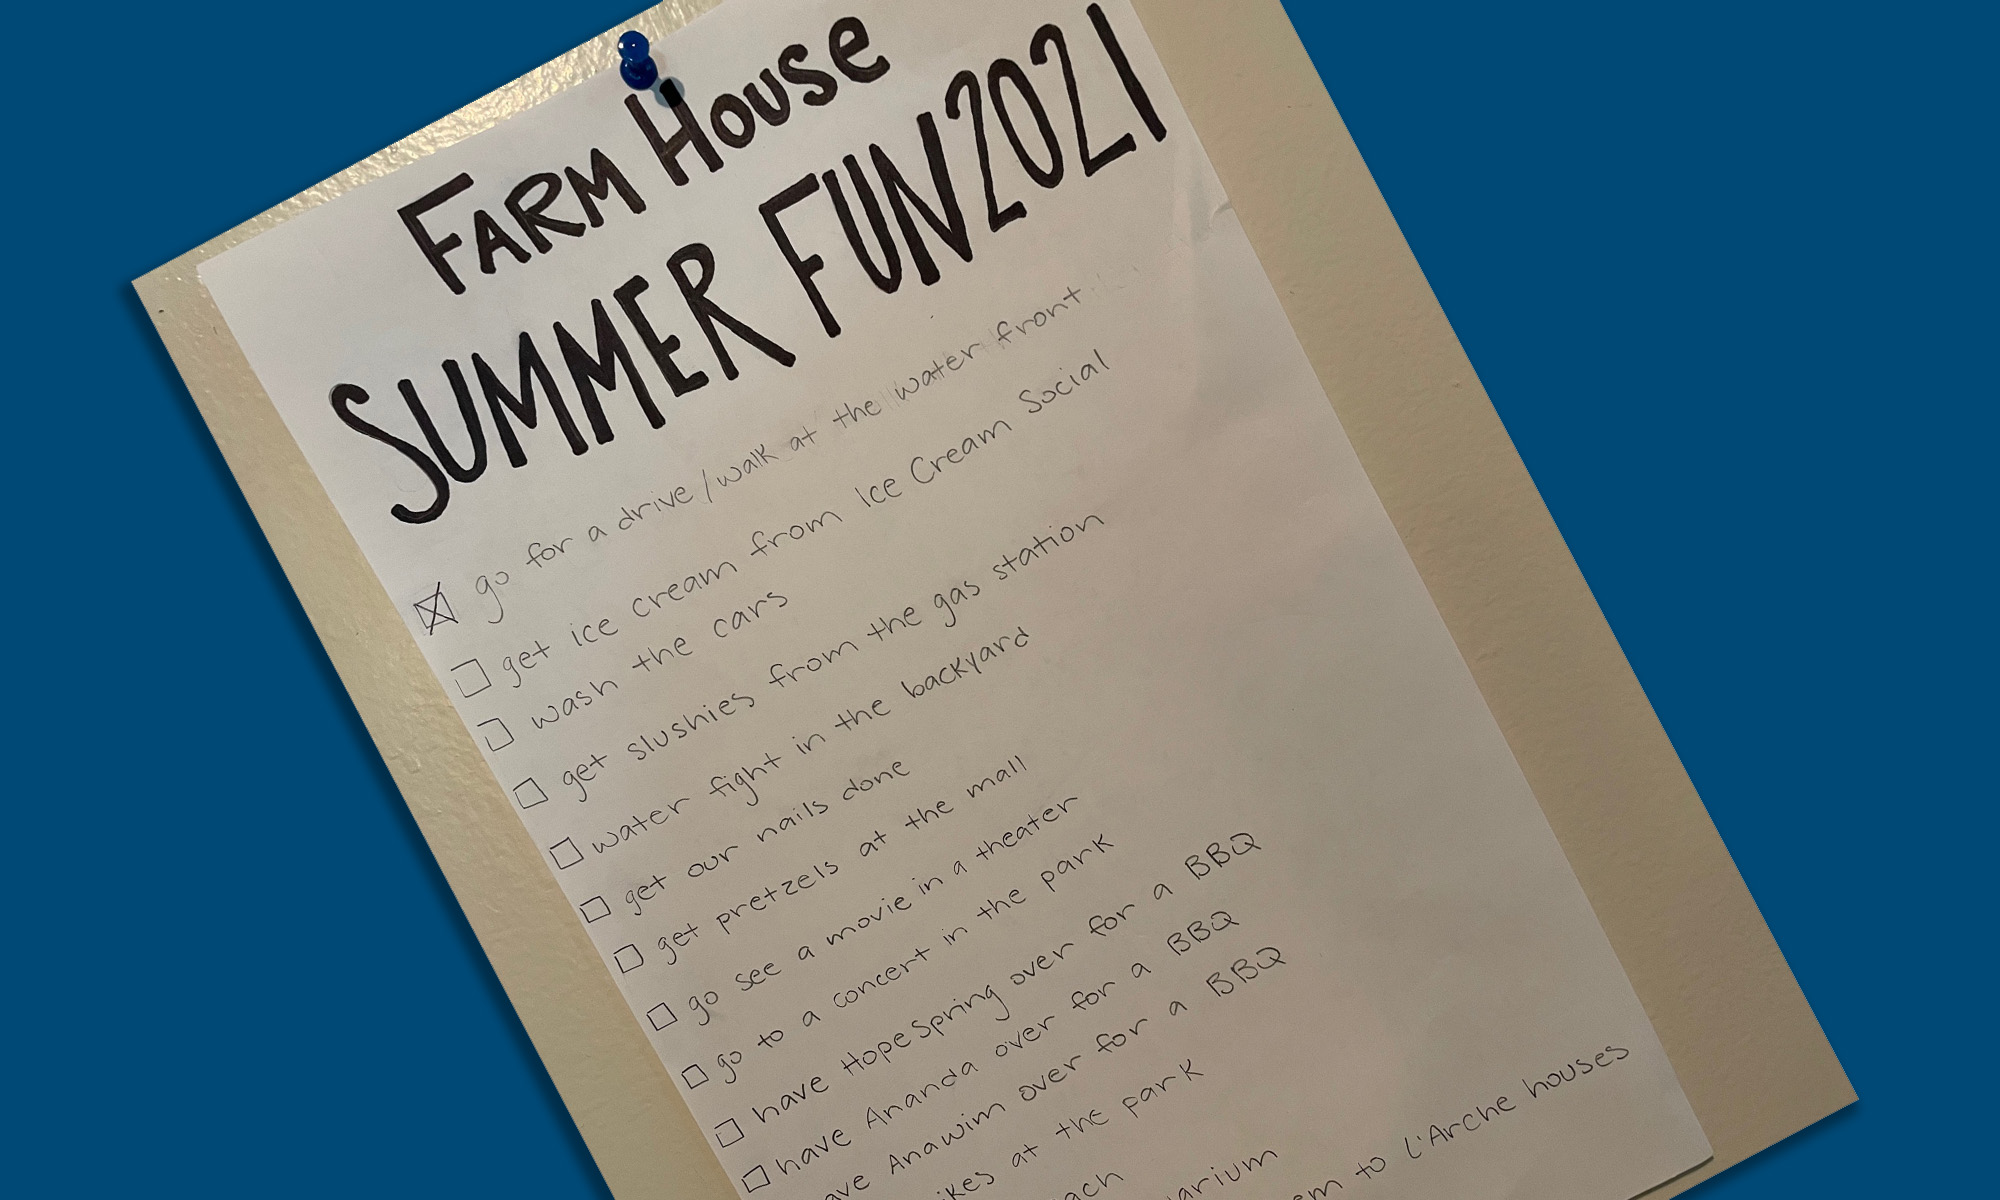 FARM HOUSE
SUMMER FUN 2021
go for a drive/walk at the water front
get ice cream from Ice Cream Social
wash the cars
get slushies from the gas station
water fight in the backyard
get our nails done
get pretzels at the mall
go see a movie in a theater
go to a concert in the park
have HopeSpring over for a BBQ
have Ananda over for a BBQ
Anawim over for a BBQ
at the park
to L'Arche houses